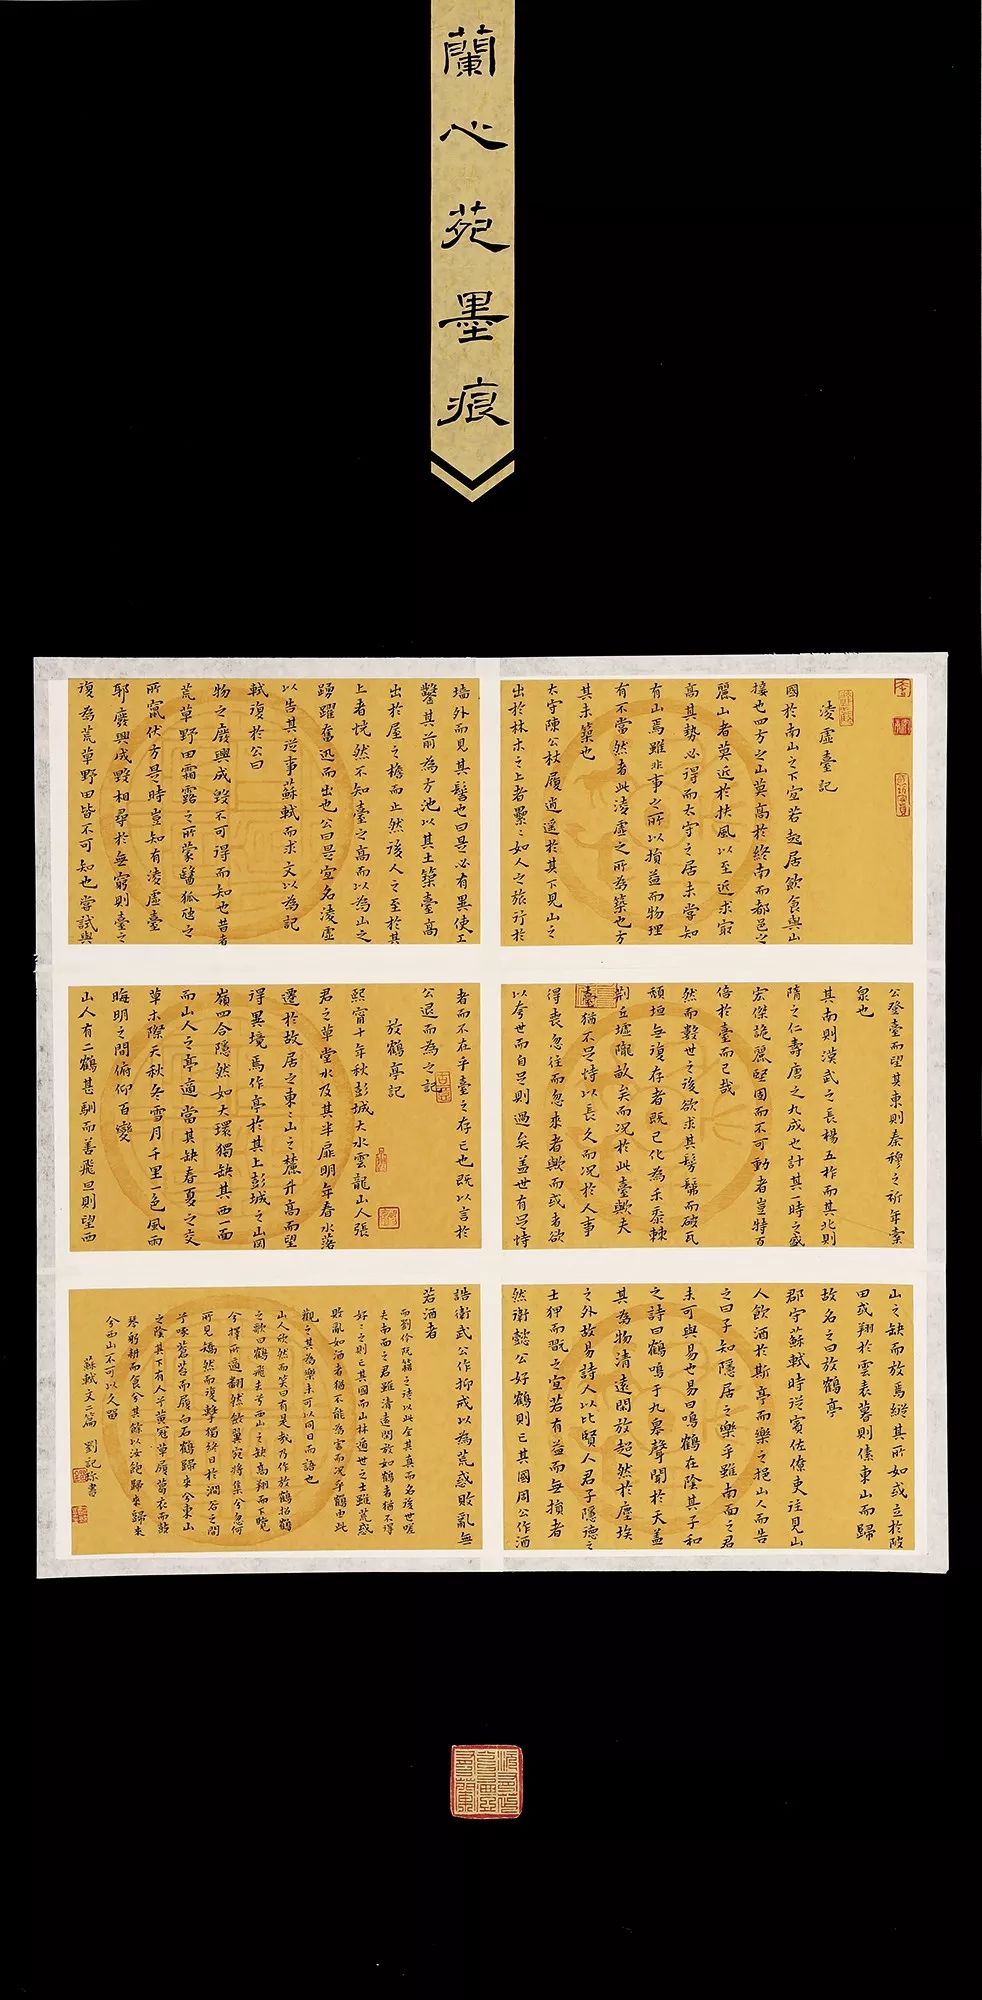 蘭心苑墨痕
凌虛臺記
國於南山之下宜若起居飲食與山
接也四方之山莫高於終南而都邑之
麗山者莫近於扶風以至近求最
高其勢必得而太守之居未嘗知
有山焉雖非事之所以損益而物理
有不當然者此淩虛之所為築也方
其未築也
太守陳公杖履逍遙於其下見山之
出於林木之上者纍〻如人之旅行於
墻外而見其髻也曰是必有異使工
鑿其前為方池以其土築臺高
出於屋之檐而止然後人之至於其
上者恍然不知臺之高而以為山之
踴躍奮迅而出也公曰是宜名淩虛
以告其從事蘇軾而求文以為記
軾復於公曰
物之廢興成毀不可得而知也昔者
荒草野田霜露之所蒙翳狐虺之
所竄伏方是時豈知有淩虛臺
耶廢興成毀相尋於無窮則臺之
復為荒草野田皆不可知也嘗試與
公登臺而望其東則秦穆之祈年橐
泉也
其南則漢武之長楊五柞而其北則
隋之仁壽唐之九成也計其一時之盛
宏傑詭麗堅固而不可動者豈特百
倍於臺而已哉
然而數世之後欲求其髣髴而破瓦
頹垣無復存者既已化為禾黍棘
荊丘墟隴畝矣而況於此臺歟夫
臺猶不足恃以長久而況於人事
得喪忽往而忽來者歟而或者欲
以夸世而自足則過矣蓋世有足恃
者而不在乎臺之存亡也既以言於
公退而為之記
放鶴亭記
熙甯十年秋彭城大水雲龍山人張
君之草堂水及其半扉明年春水落
遷於故居之東〻山之麓升高而望
得異境焉作亭於其上彭城之山岡
嶺四合隱然如大環獨缺其西一面
而山人之亭適當其缺春夏之交
草木際天秋冬雪月千里一色風雨
晦明之間俯仰百變
山人有二鶴甚馴而善飛旦則望西
山之缺而放焉縱其所如或立於陂
田或翔於雲表暮則傃東山而歸
故名之曰放鶴亭
郡守蘇軾時從賓佐僚吏往見山
人飲酒於斯亭而樂之挹山人而告
之曰子知隱居之樂乎雖南面之君
未可與易也易曰鳴鶴在陰其子和
之詩曰鶴鳴于九皋聲聞於天蓋
其為物清遠閑放超然於塵埃
之外故易詩人以比賢人君子隱德之
士狎而翫之宜若有益而無損者
然衛懿公好鶴則亡其國周公作酒
誥衛武公作抑戒以為荒惑敗亂無
若酒者
而劉伶阮籍之徒以此全其真而名後世嗟
夫南面之君雖清遠閑放如鶴者猶不得
好〻之則亡其國而山林遁世之士雖荒惑
敗亂如酒者猶不能為害而況乎鶴由此
觀之其為樂未可以同日而語也
山人欣然而笑曰有是哉乃作放鶴招鶴
之歌曰鶴飛去兮西山之缺高翔而下覽
兮擇所適翻然斂翼宛將集兮忽何
所見矯然而復擊獨終日於澗谷之間
兮啄蒼苔而履白石鶴歸來兮東山
之陰其下有人兮黃冠草屨葛衣而鼓
琴躬耕而食兮其餘以汝飽歸來歸來
兮西山不可以久留
蘇軾文二篇 劉記珍書